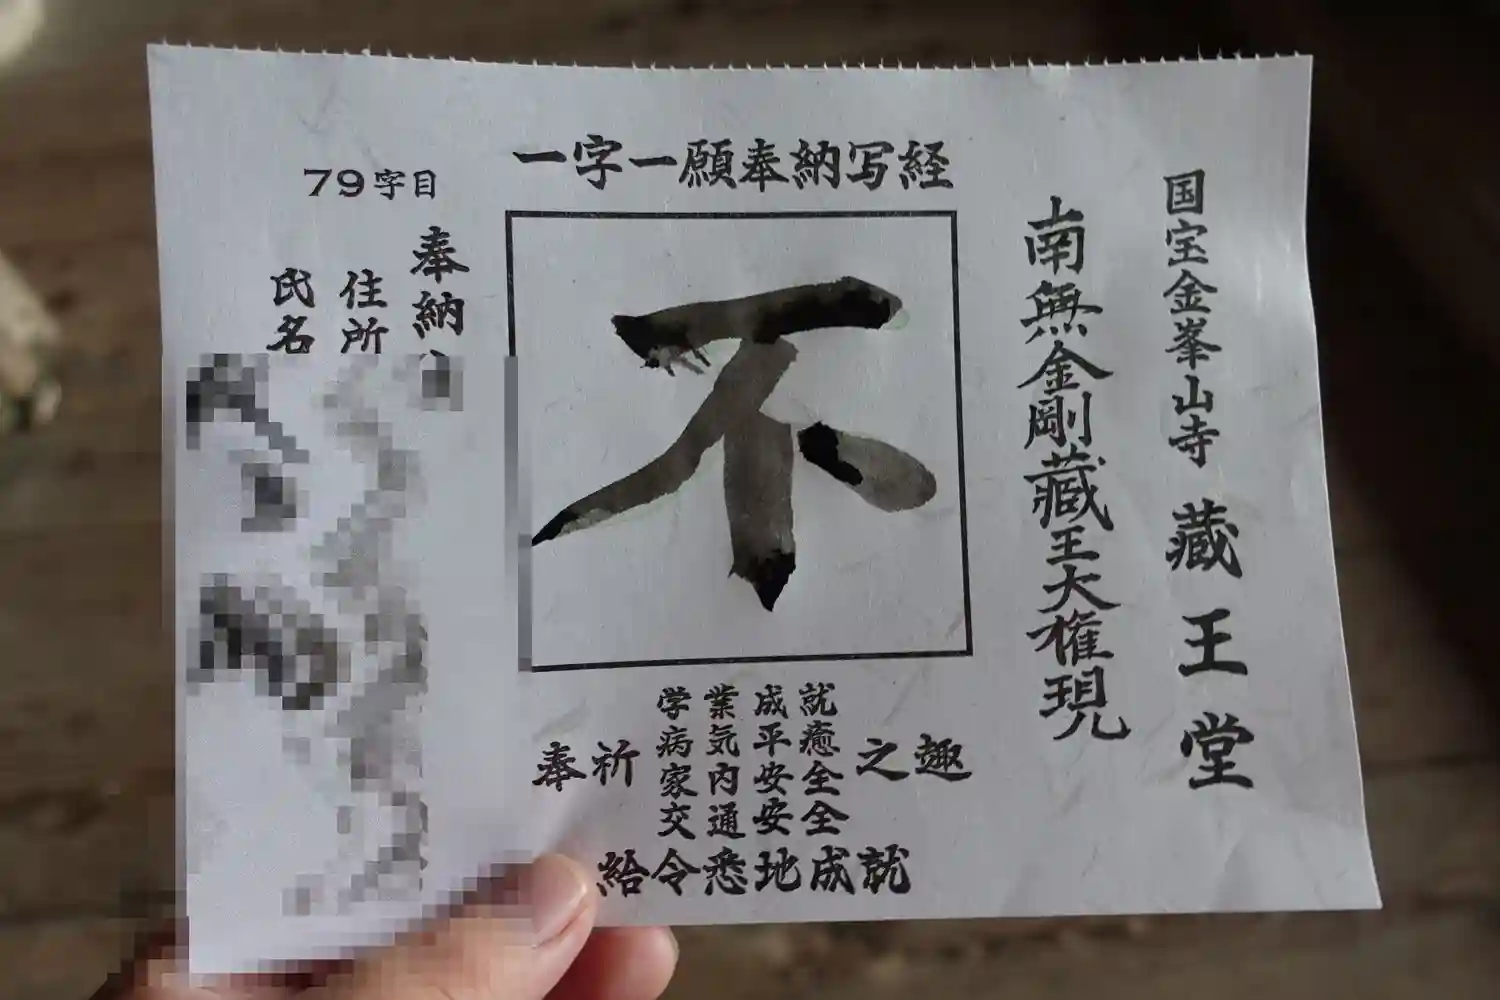 国宝金峯山寺 藏王堂
南無金剛藏王大権現
一字一願奉納写経
不
奉祈
学業成就
病気平癒
家内安全
交通安全
之趣
給令悉地成就
79字目
奉納
住所
氏名